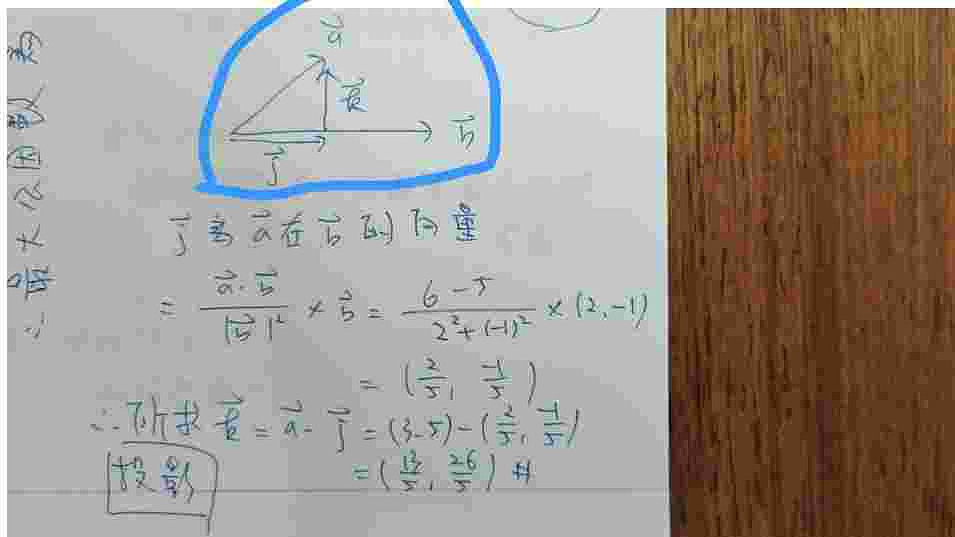 a⃗
k⃗
b⃗
j⃗
j⃗ 為 a⃗ 在 b⃗ 的向量
= (a⃗·b⃗)/|b⃗|² × b⃗ = (6-5)/(2²+(-1)²) × (2,-1)
= (2/5, -1/5)
∴所求 k⃗ = a⃗ - j⃗ = (3.5)-(2/5, -1/5)
= (13/5, 26/5) #
投影
∴最大公因數